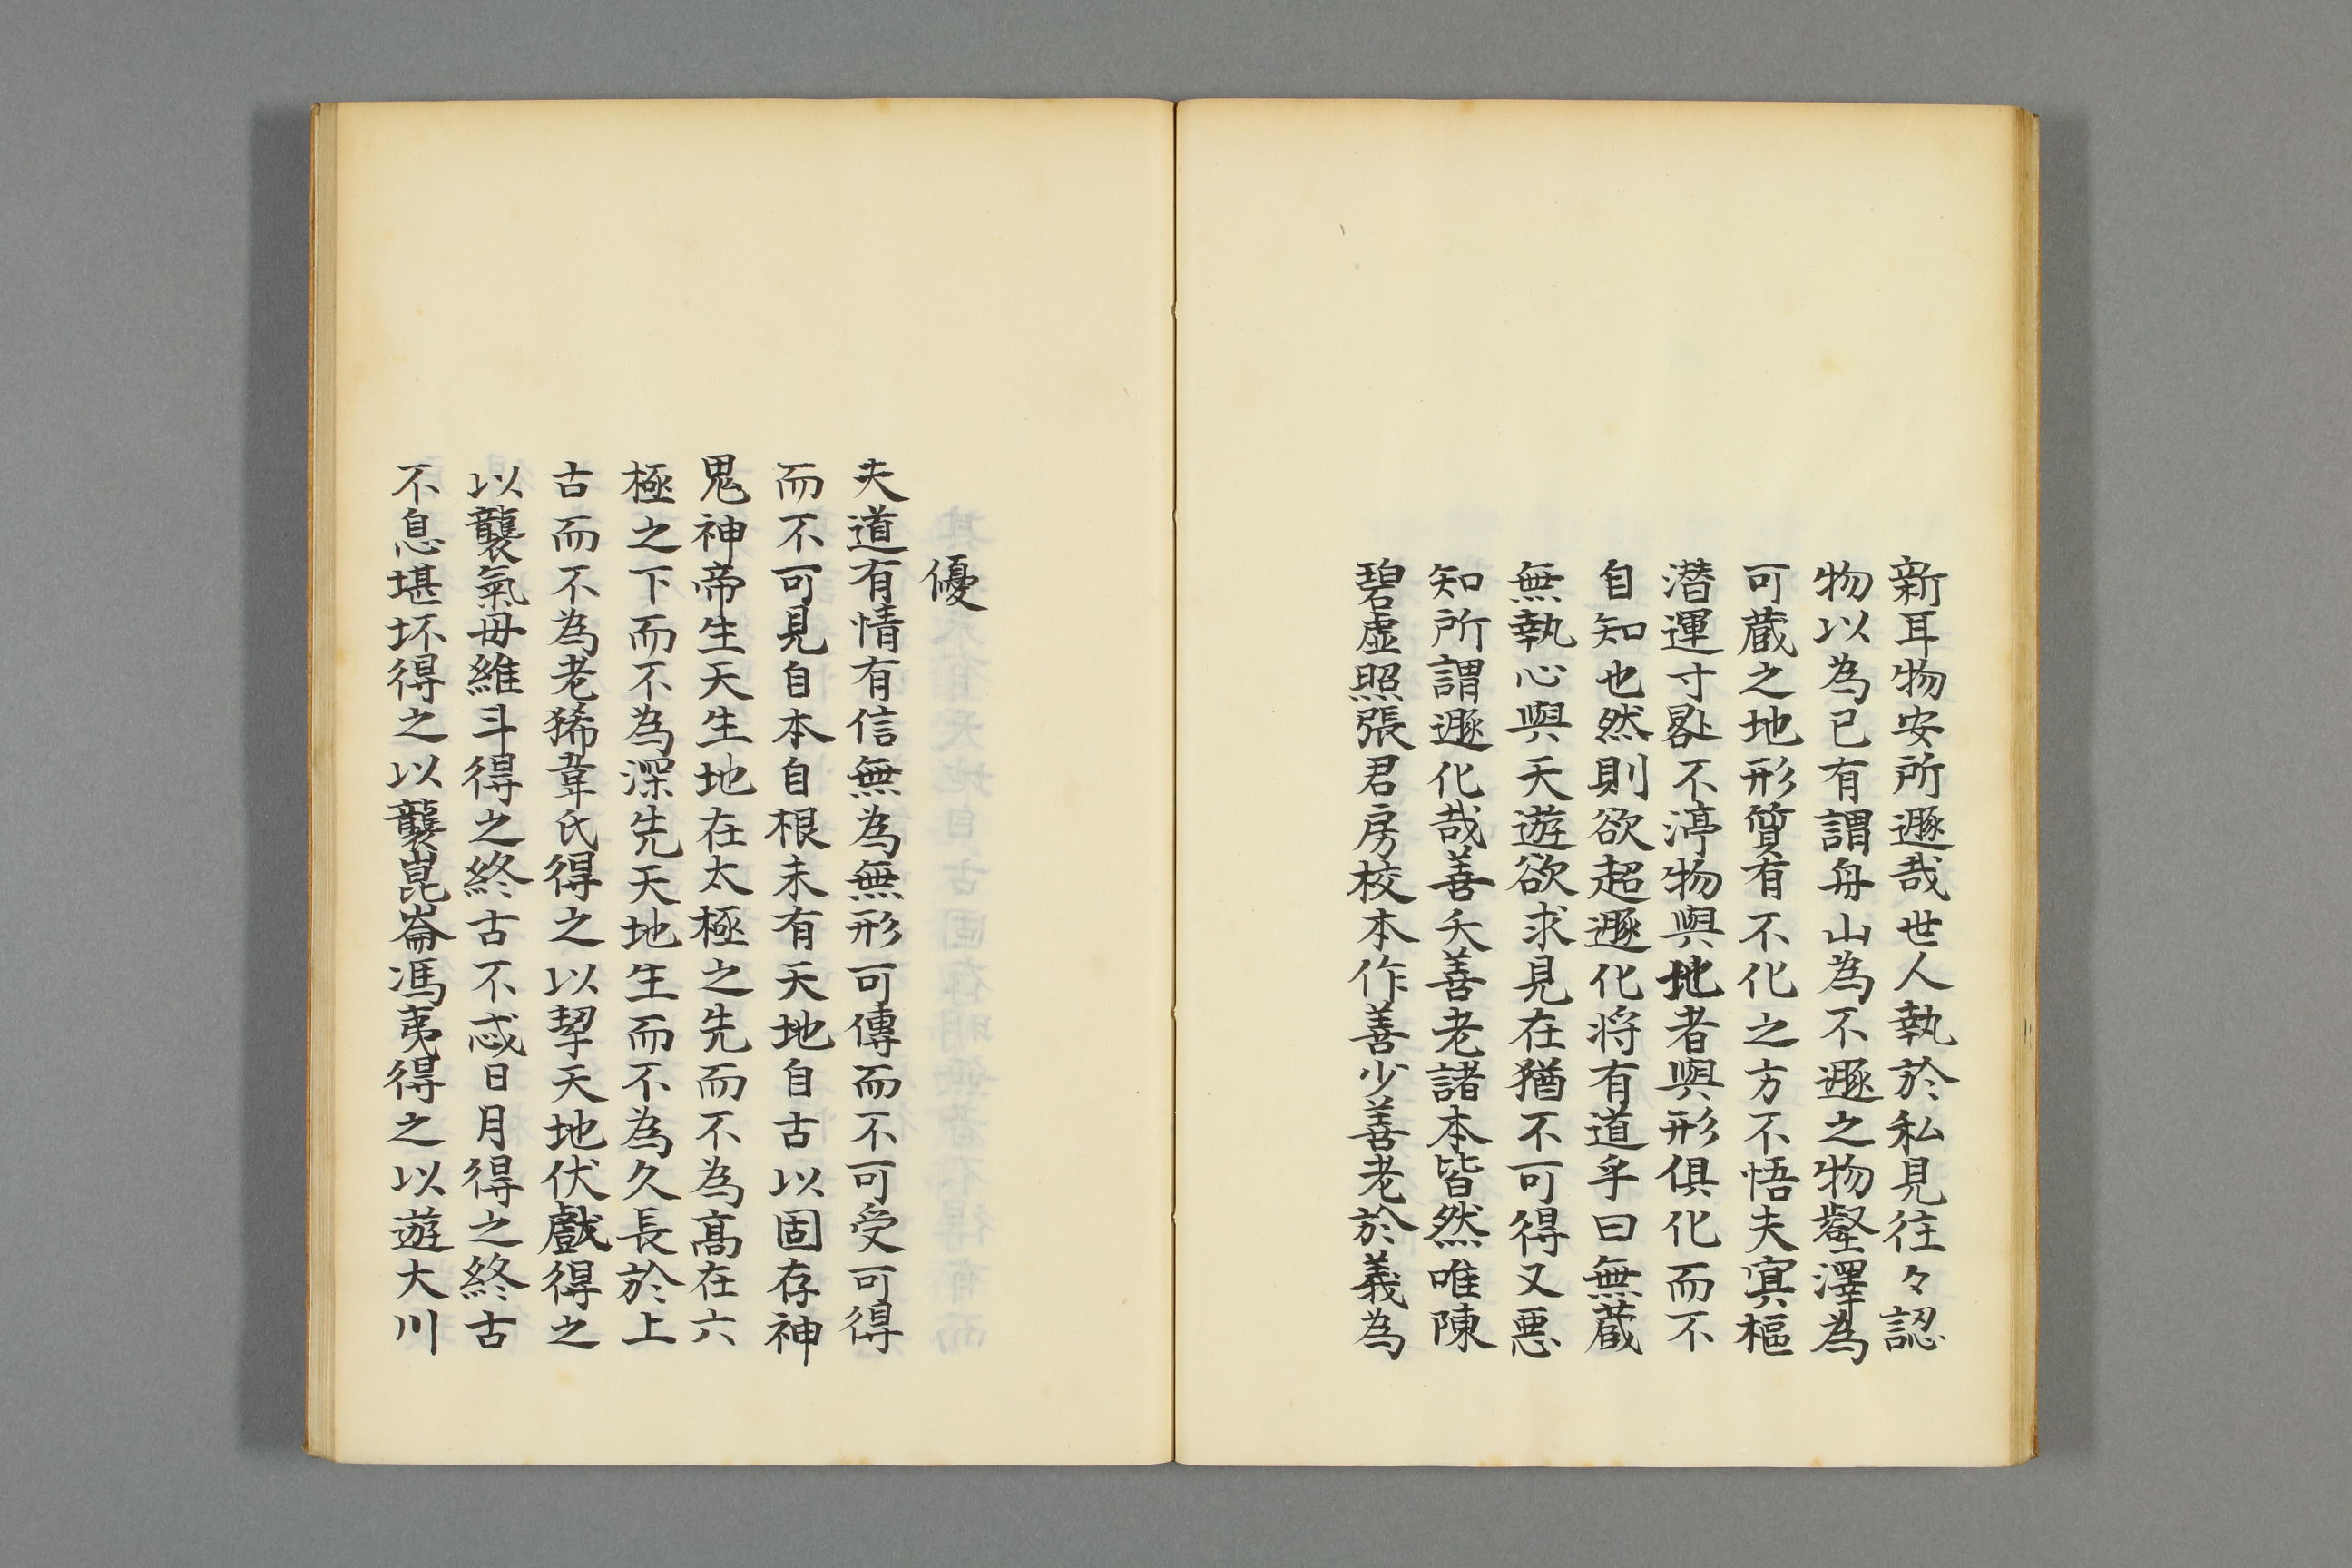 新耳物安所遯哉世人執於私見往々認
物以為已有謂舟山為不遯之物壑澤為
可蔵之地形質有不化之方不悟夫㝠樞
潜運寸晷不渟物與地者與形俱化而不
自知也然則欲超遯化将有道乎曰無蔵
無執心與天遊欲求見在猶不可得又悪
知所謂遯化哉善夭善老諸本皆然唯陳
碧虚照張君房校本作善少善老於義為
優
夫道有情有信無為無形可傳而不可受可得
而不可見自本自根未有天地自古以固存神
鬼神帝生天生地在太極之先而不為髙在六
極之下而不為深先天地生而不為久長於上
古而不為老狶韋氏得之以挈天地伏戲得之
以襲氣母維斗得之終古不忒日月得之終古
不息堪坏得之以襲崑崙馮夷得之以遊大川